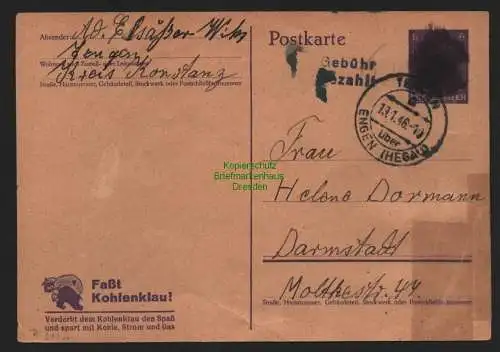 Absender: Ad. Elsäßer Wtw
Tengen
Kreis Konstanz
Straße, Hausnummer, Gebäudeteil, Stockwerk oder Postschließfachnummer
Postkarte
Gebühr
bezahlt
TENGEN
13.1.46.-10
über
ENGEN (HEGAU)
Frau
Helene Dormann
Darmstadt
Moltkestr. 47.
Straße, Hausnummer, Gebäudeteil, Stockwerk oder Postschließfachnummer
Kopierschutz
Briefmarkenhaus
Dresden
Faßt
Kohlenklau!
Verderbt dem Kohlenklau den Spaß
und spart mit Kohle, Strom und Gas